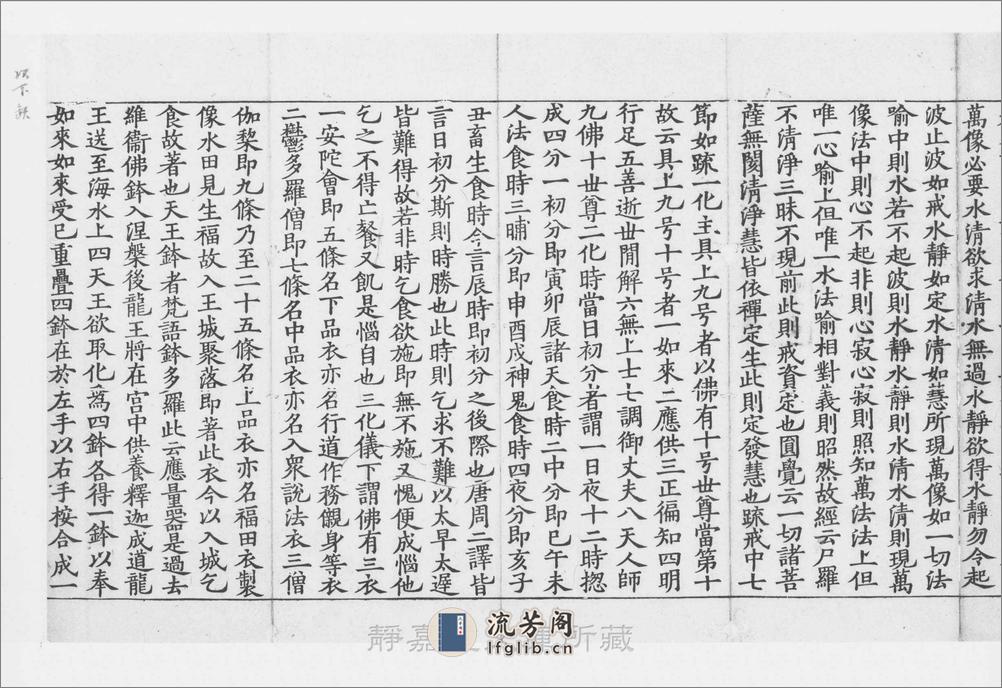 萬像必要水清欲求清水無過水靜欲得水靜勿令起
波止波如戒水靜如定水清如慧所現萬像如一切法
喻中則水若不起波則水靜水靜則水清水清則現萬
像法中則心不起非則心寂心寂則照知萬法法上但
唯一心喻上但唯一水法喻相對義則昭然故經云尸羅
不清淨三昧不現前此則戒資定也圓覺云一切諸菩
薩無閡清淨慧皆依禪定生此則定發慧也䟽戒中七
節如䟽一化主具上九号者以佛有十号世尊當第十
故云具上九号十号者一如來二應供三正徧知四明
行足五善逝世閒解六無上士七調御丈夫八天人師
九佛十世尊二化時當日初分者謂一日夜十二時揔
成四分一初分即寅卯辰諸天食時二中分即巳午未
人法食時三晡分即申酉戌神鬼食時四夜分即亥子
丑畜生食時今言辰時即初分之後際也唐周二譯皆
言日初分斯則時勝也此時則乞求不難以太早太遲
皆難得故若非時乞食欲施即無不施又愧便成惱他
乞之不得亡餐又飢是惱自也三化儀下謂佛有三衣
一安陀會即五條名下品衣亦名行道作務儭身等衣
二鬱多羅僧即七條名中品衣亦名入衆說法衣三僧
伽棃即九條乃至二十五條名上品衣亦名福田衣製
像水田見生福故入王城聚落即著此衣今以入城乞
食故著也天王鉢者梵語鉢多羅此云應量器是過去
維衞佛鉢入涅槃後龍王將在宮中供養釋迦成道龍
王送至海水上四天王欲取化爲四鉢各得一鉢以奉
如來如來受已重疊四鉢在於左手以右手按合成一
流芳阁
lfglib.cn
靜嘉
所藏